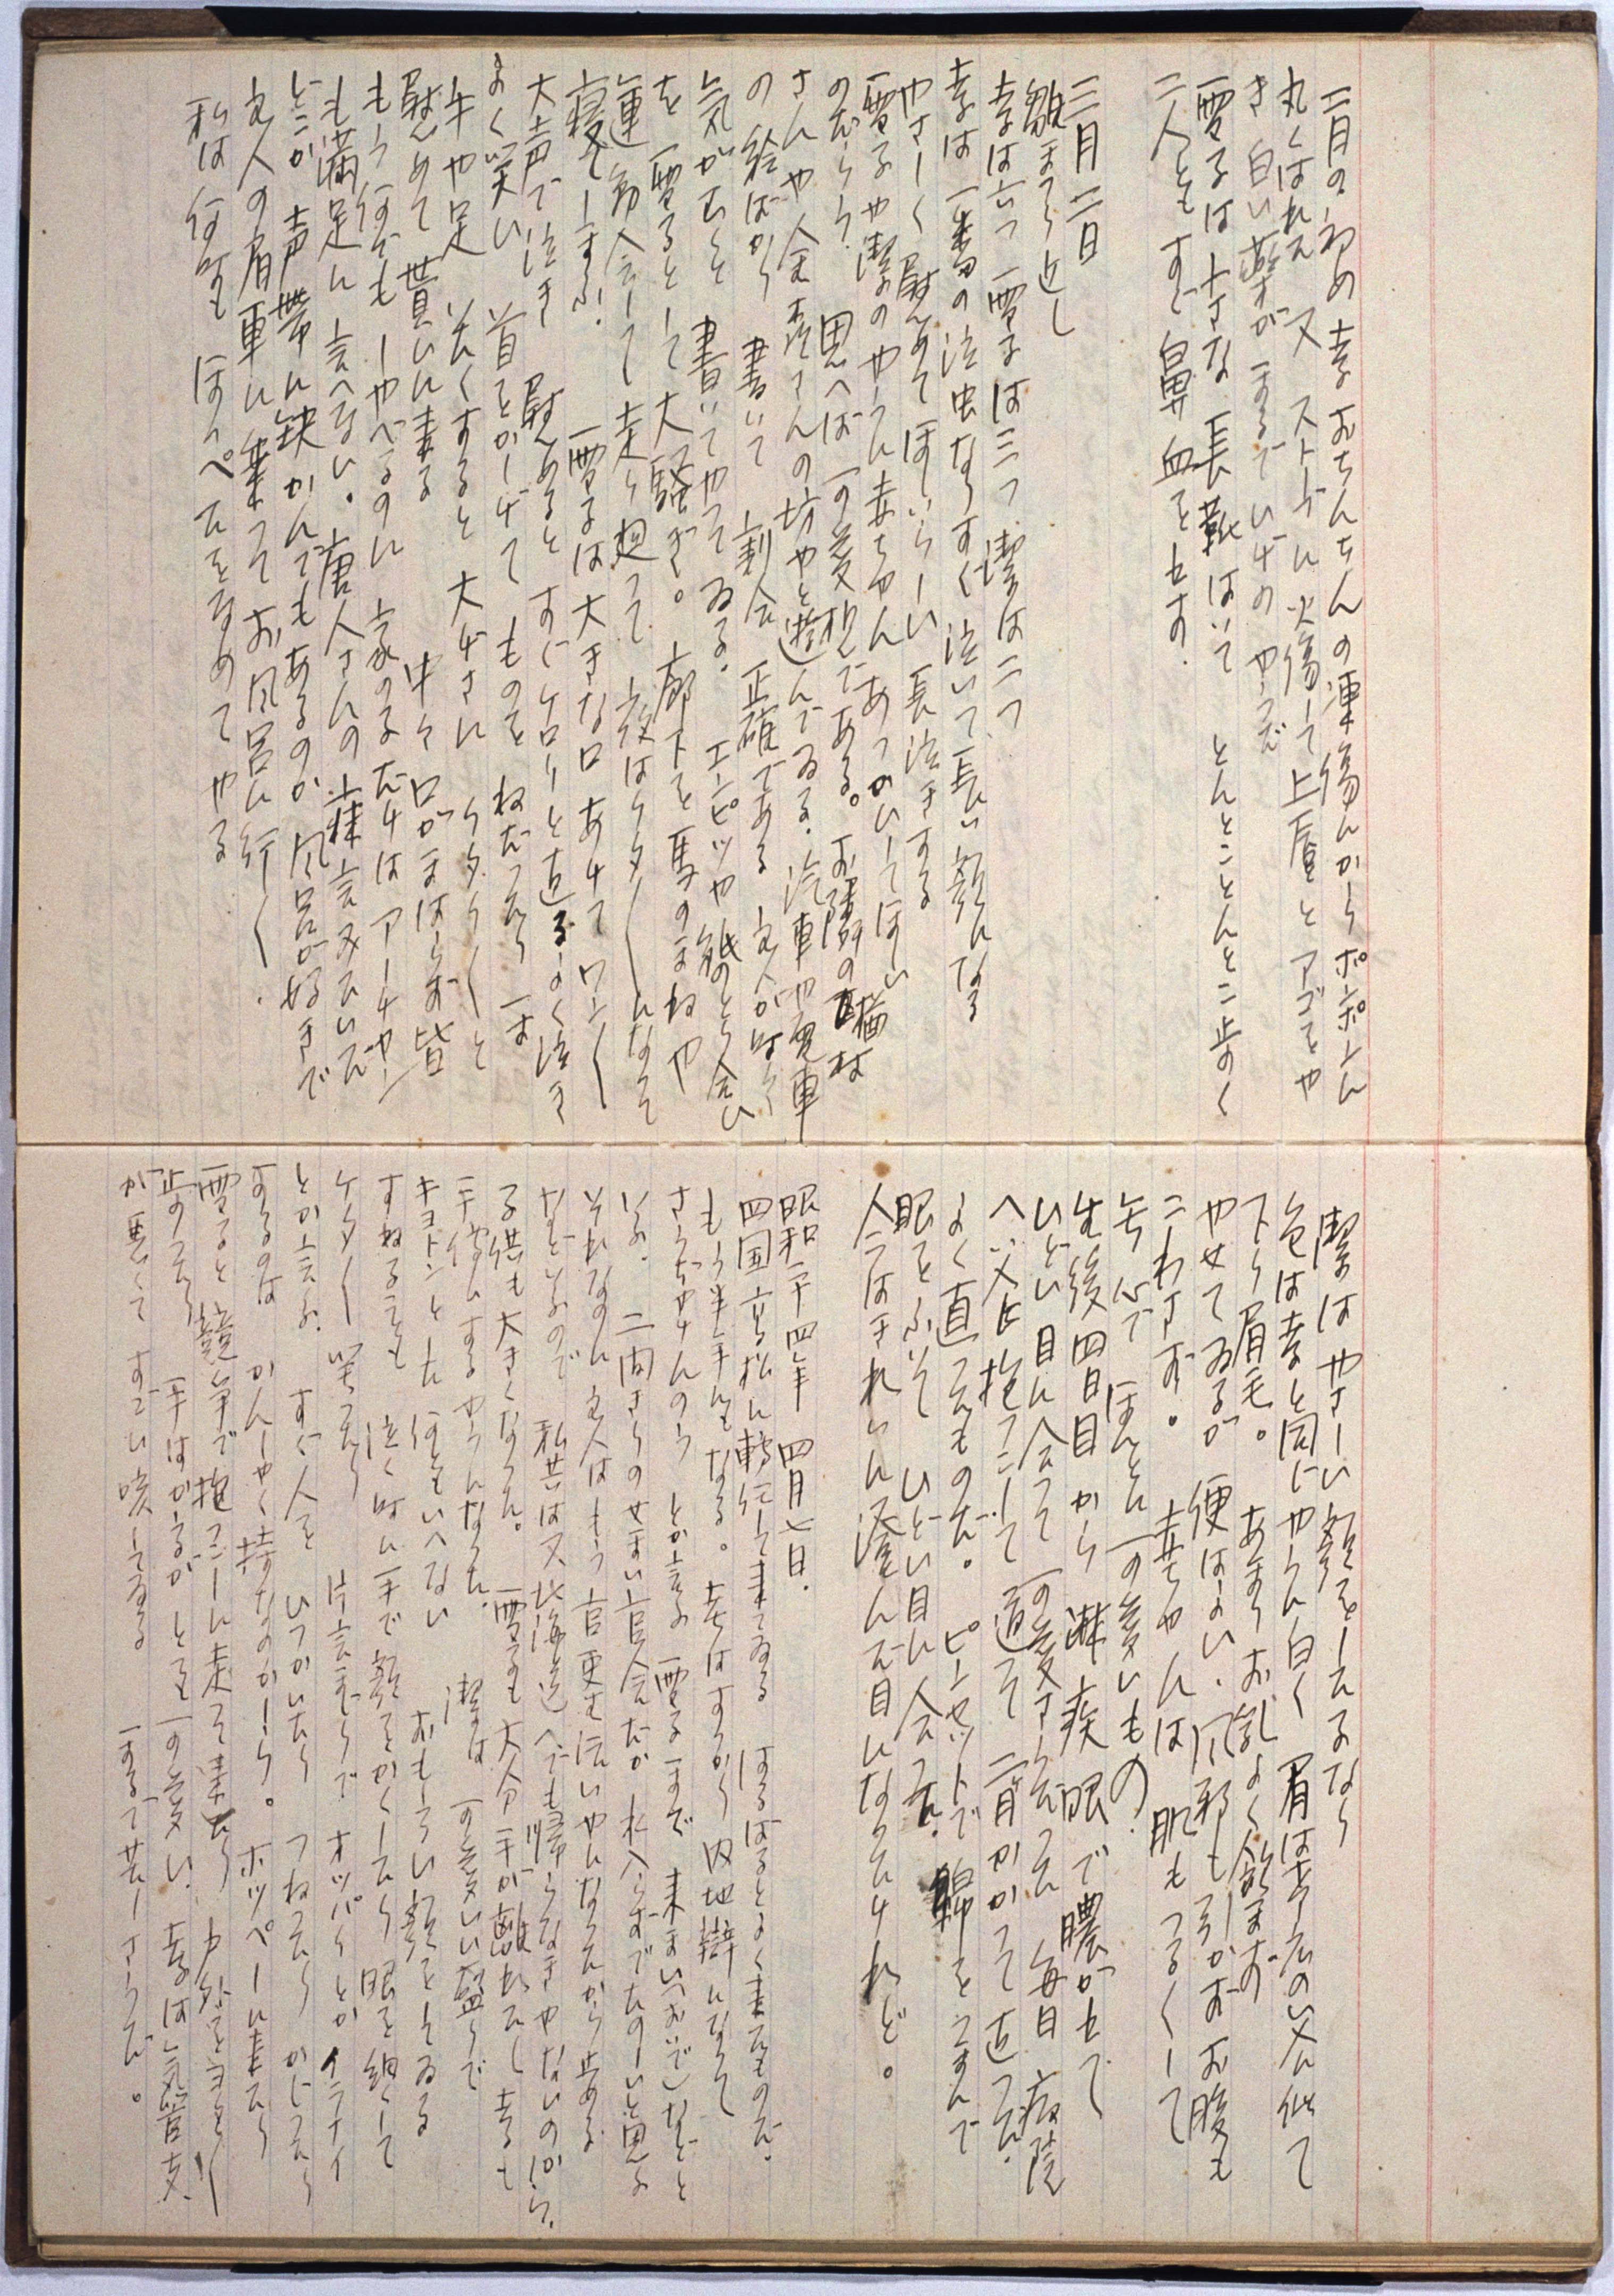 二月の初め 幸子おちんちんの凍傷にかゝりポンポンに
丸くはれた 又 ストーブに火傷して上唇とアゴをや
き 白い薬がまるでひげのやうだ
雪子は大きな長靴はいて とんとことんとこ歩のく
二人ともすぐ鼻血を出す.
三月二日
雛まつり近し
幸は六つ 雪子は三つ 潔は二つ
幸は一番の泣虫ならすぐ泣いて長い顔になる
やさしく慰めてほしいらしい 長泣きする
雪子や潔のやうに赤ちゃんあつかひしてほしい
のだらう. 思へば可愛想である。お隣の植村
さんや金森さんの坊やと遊んでゐる.汽車や電車
の絵ばかり書いて 割合正確である 主人が時々
気がむくと書いてやつてゐる. エンピツや紙のとり合ひ
を雪子として大騒ぎ。廊下を馬のまねや
運動会して走り廻つて 夜はクタ〱になつて
寝てしまふ. 雪子は大きな口あけてワン〱
大声で泣き 慰めるとすぐケロリと直る よく泣き
よく笑い 首をかしげてものをねだつたり 一寸
手や足 いたくすると 大げさに イタイ〱と
慰めて貰ひに来る 中々口がまはらず皆
もう何でもしやべるのに 家の子だけは アーチャン
も満足に言へない。唐人さんの寝言みたいだ
どこか声帯に缺かんでもあるのか 風呂が好きで
主人の肩車に乗つてお風呂に行く.
私は何時もほつぺたをなめてやる
潔はやさしい顔をしてるなり
色は幸と同じやうに白く 眉は幸
下り眉毛。 あまりお乳よく飲まず
やせてゐるが 便はよい. 風邪も引かずお腹も
こわさず。 赤ちゃんは肌もつる〱して
無心で ほんとに可愛いもの.
生後四日目から淋疾眼で膿が出て
ひどい目に会つて 可愛さうだつた 毎日病院
へ父上抱つこして通つて 一ヶ月かかつて直つた.
よく直つたものだ。 ピンセットで綿をつまんで
眼をふいて ひどい目に会つた.
今はきれいに澄んだ目になつたけれど。
昭和二十四年 四月七日.
四国高松に転任して来てゐる はるばるとよく来たものだ.
もう半年にもなる。幸はすつかり内地辯になつて
さうぢやけんのう とか言ふ 雪子まで 来まい(おいで)などと
いふ. 二間きりのせまい官舎だが 水入らずでたのしいと思ふ
それなのに主人はもう官吏生活いやになつたから止める
などいふので 私共は又北海道へでも帰らなきやならないのかしら.
子供も大きくなつた。 雪子も大分手が離れたし 幸も
手伝するやうになつた. 潔は可愛い盛りで
キョトンとした何ともいへない おもしろい顔をしてゐる
すねる事も 泣く時に手で顔をかくしたり 眼を細くして
ケタ〱笑つたり 片言まじりで オッパイとか イラナイ
とか言ふ. すぐ人を ひつかいたり つねつたり かじつたり
するのは かんしやく持なのかしら。 ホッペしに来たり
雪子と競争で抱つこしに走つて来たり 戸外をヨチ〱
歩のいたり 手はかゝるが とても可愛い 幸は気管支
が悪くてすごい咳してゐる するで苦しさうだ。